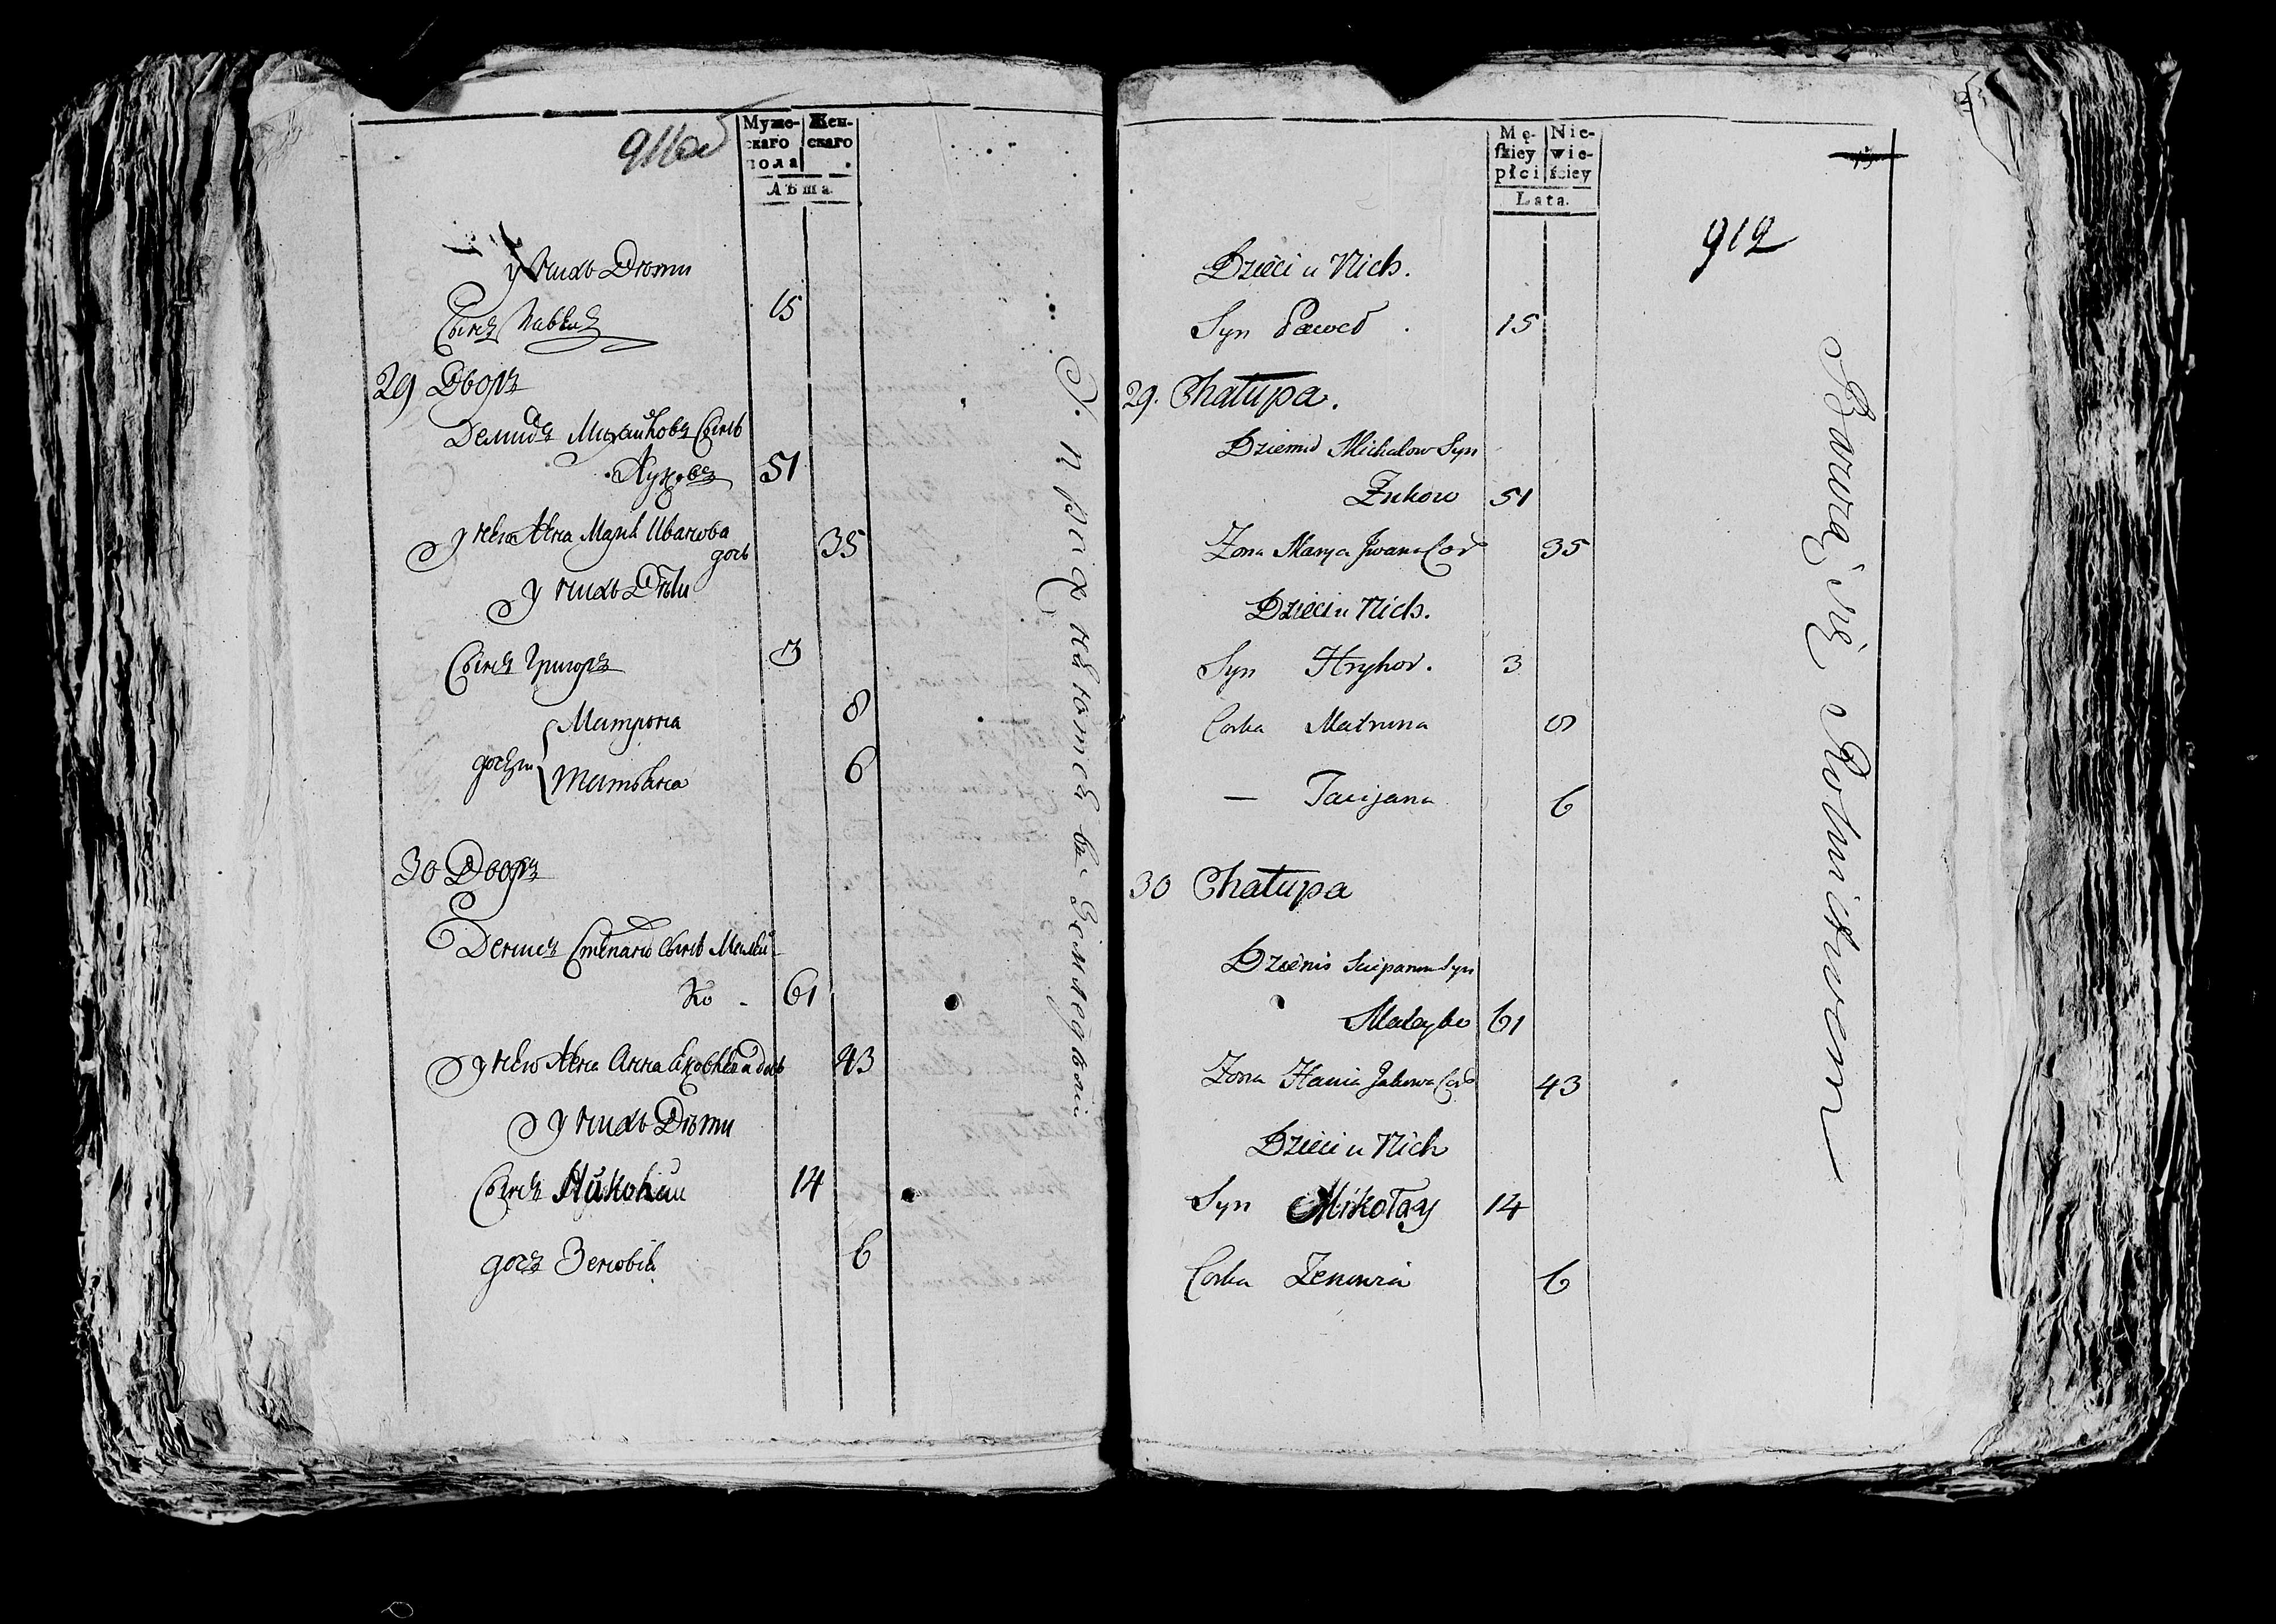 911об
Муже-
скаго
пола
Жен-
скаго
Лѣта.
у нихъ Дѣти
Сынъ Павелъ 15
29 Дворъ
Демидъ Михайловъ Сынъ
Жуковъ 51
у него Жена Марья Иванова
дочь 35
у нихъ Дѣти
Сынъ Григоръ 3
Матрона 8
дочери
Татьяна 6
30 Дворъ
Денисъ Степановъ Сынъ Малей-
ко 61
у него Жена Анна дочь 43
у нихъ Дѣти
Сынъ Николай 14
дочь Зеновія 6
Упражняются въ Земледѣліи
Mę-
skiey
płci
Nie-
wie-
ściey
Lata.
912
Dzieci u Nich.
Syn Paweł 15
29. Chałupa.
Dziemid Michałow Syn
Żukow 51
Żona Marya Jwana Cor 35
Dzieci u Nich.
Syn Hryhor. 3
Corka Matruna 8
— Tacijana 6
30 Chałupa
Dzienis Sciepanow Syn
Maleyko 61
Żona Hania Jakowa Cor 43
Dzieci u Nich
Syn Mikołay 14
Corka Zenowia 6
Bawią się Rolnictwem